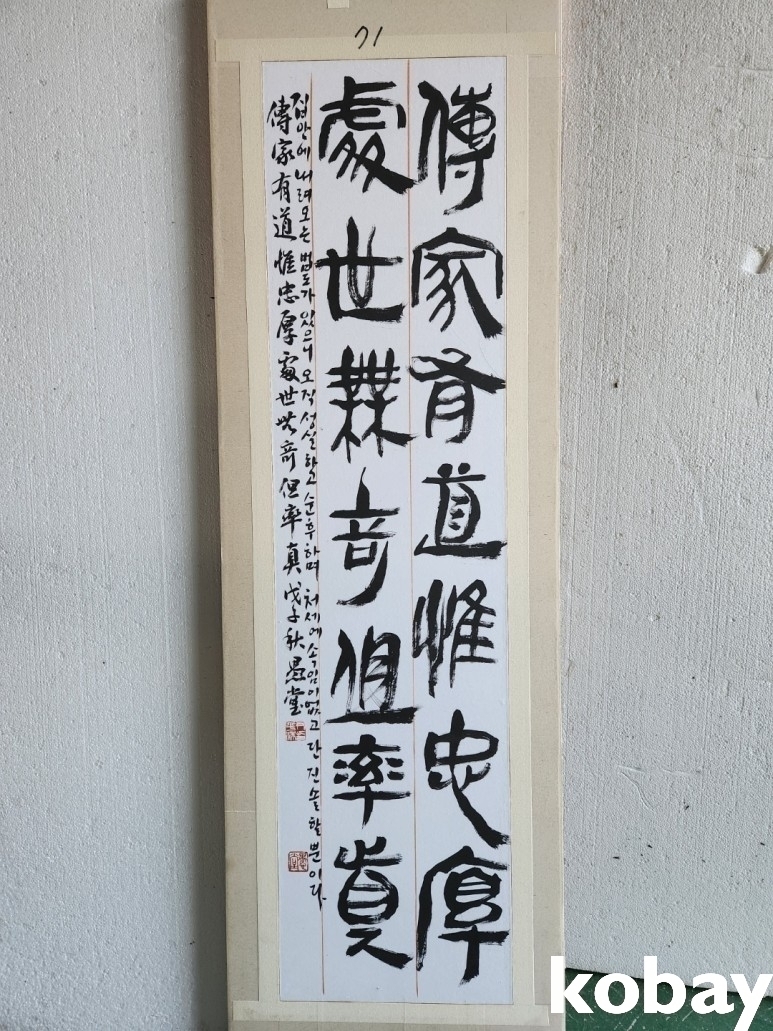 71
傳家有道惟忠厚
處世無奇但率眞
집안에 내려오는 법도가 있으니 오직 성실하고 순후하며 처세에 속임이 없고 단 진솔할 뿐이다
傳家有道惟忠厚處世無奇但率真 戊子秋
kobay